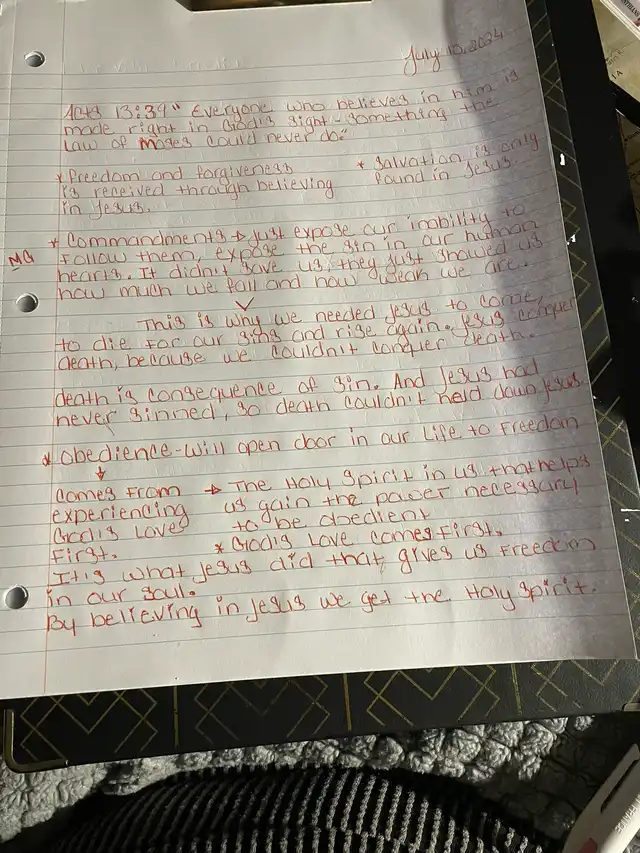 July 10, 2024
Acts 13:39 "Everyone who believes in him is
made right in God's sight - something the
Law of Moses could never do."
* Freedom and forgiveness
is received through believing
in Jesus.
* Salvation is only
found in Jesus.
MG
* Commandments → just expose our inability to
follow them, expose the sin in our human
hearts. It didn't save us, they just showed us
how much we fail and how weak we are.
This is why we needed Jesus to come,
to die for our sins and rise again. Jesus conquer
death, because we couldn't conquer death.
death is consequence of sin. And Jesus had
never sinned, so death couldn't held down Jesus.
* Obedience - will open door in our life to freedom
↓
Comes from
experiencing
God's Love
First.
→ The Holy Spirit in us that helps
us gain the power necessary
to be obedient
* God's Love comes first.
It is what Jesus did that gives us freedom
in our soul.
By believing in Jesus we get the Holy Spirit.